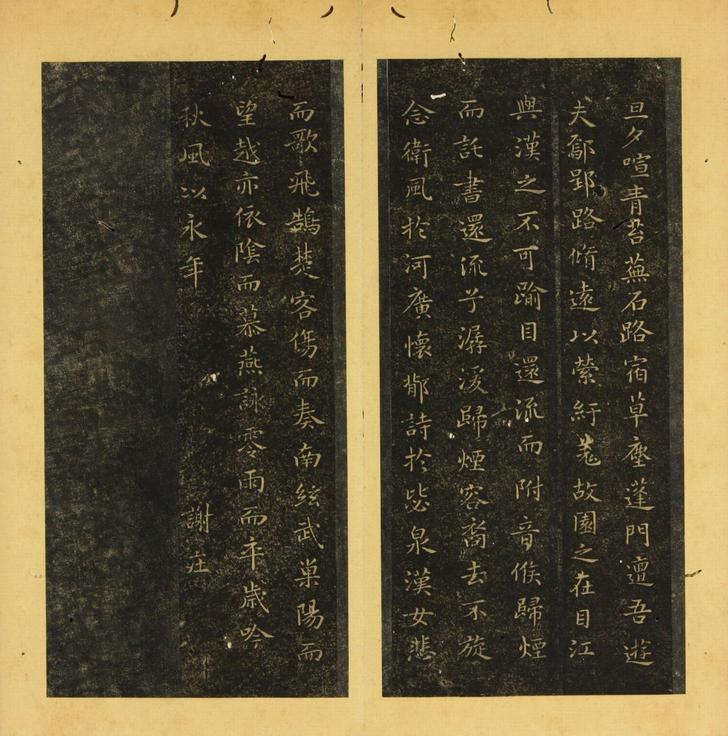 旦夕喧青苔蕪石路宿草塵蓬門邅吾遊
夫鄢郢路脩遠以縈紆羗故園之在目江
與漢之不可踰目還流而附音候歸煙
而託書還流兮潺湲歸煙容裔去不旋
念衛風於河廣懷鄁詩於毖泉漢女悲
而歌飛鵠楚客傷而奏南絃武巢陽而
望越亦依陰而慕燕詠零雨而卒歲吟
秋風以永年 謝莊